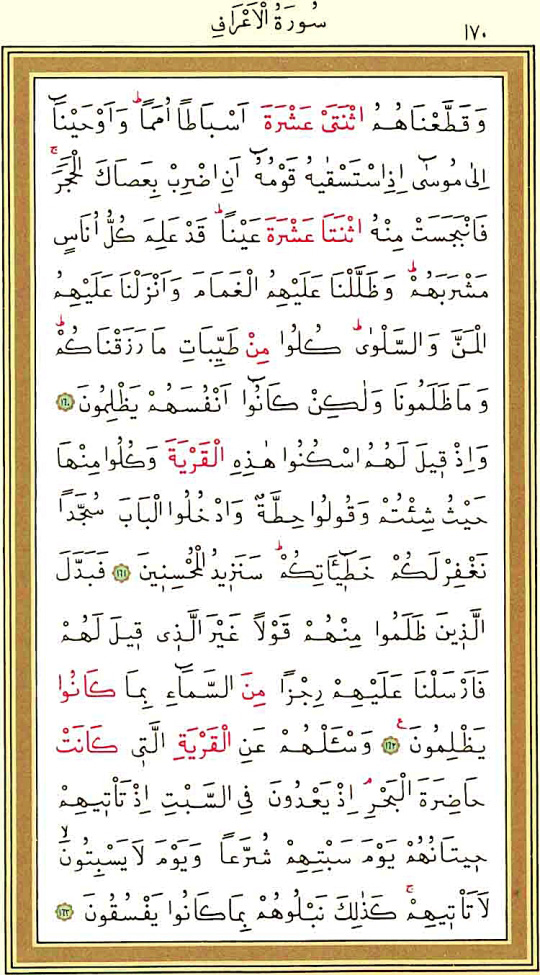 سُورَةُ الْاَعْرَافِ ١٧٠
وَقَطَّعْنَاهُمُ اثْنَتَىْ عَشْرَةَ اَسْبَاطًا اُمَمًاۜ وَاَوْحَيْنَٓا
اِلٰى مُوسٰٓى اِذِ اسْتَسْقٰيهُ قَوْمُهُٓ اَنِ اضْرِبْ بِعَصَاكَ الْحَجَرَۚ
فَانْبَجَسَتْ مِنْهُ اثْنَتَا عَشْرَةَ عَيْنًاۜ قَدْ عَلِمَ كُلُّ اُنَاسٍ
مَشْرَبَهُمْۜ وَظَلَّلْنَا عَلَيْهِمُ الْغَمَامَ وَاَنْزَلْنَا عَلَيْهِمُ
الْمَنَّ وَالسَّلْوٰىۜ كُلُوا مِنْ طَيِّبَاتِ مَا رَزَقْنَاكُمْۜ
وَمَا ظَلَمُونَا وَلٰكِنْ كَانُٓوا اَنْفُسَهُمْ يَظْلِمُونَ ١٦٠
وَاِذْ قِيلَ لَهُمُ اسْكُنُوا هٰذِهِ الْقَرْيَةَ وَكُلُوا مِنْهَا
حَيْثُ شِئْتُمْ وَقُولُوا حِطَّةٌ وَادْخُلُوا الْبَابَ سُجَّدًا
نَغْفِرْ لَكُمْ خَطِٓيـَٔاتِكُمْۜ سَنَزِيدُ الْمُحْسِنِينَ ١٦١ فَبَدَّلَ
الَّذِينَ ظَلَمُوا مِنْهُمْ قَوْلًا غَيْرَ الَّذِى قِيلَ لَهُمْ
فَاَرْسَلْنَا عَلَيْهِمْ رِجْزًا مِنَ السَّمَٓاءِ بِمَا كَانُوا
يَظْلِمُونَ۟ ١٦٢ وَسْـَٔلْهُمْ عَنِ الْقَرْيَةِ الَّتِى كَانَتْ
حَاضِرَةَ الْبَحْرِۢ اِذْ يَعْدُونَ فِى السَّبْتِ اِذْ تَأْتِيهِمْ
حِيتَانُهُمْ يَوْمَ سَبْتِهِمْ شُرَّعًا وَيَوْمَ لَا يَسْبِتُونَۙ
لَا تَأْتِيهِمْۚ كَذٰلِكَ نَبْلُوهُمْ بِمَا كَانُوا يَفْسُقُونَ ١٦٣